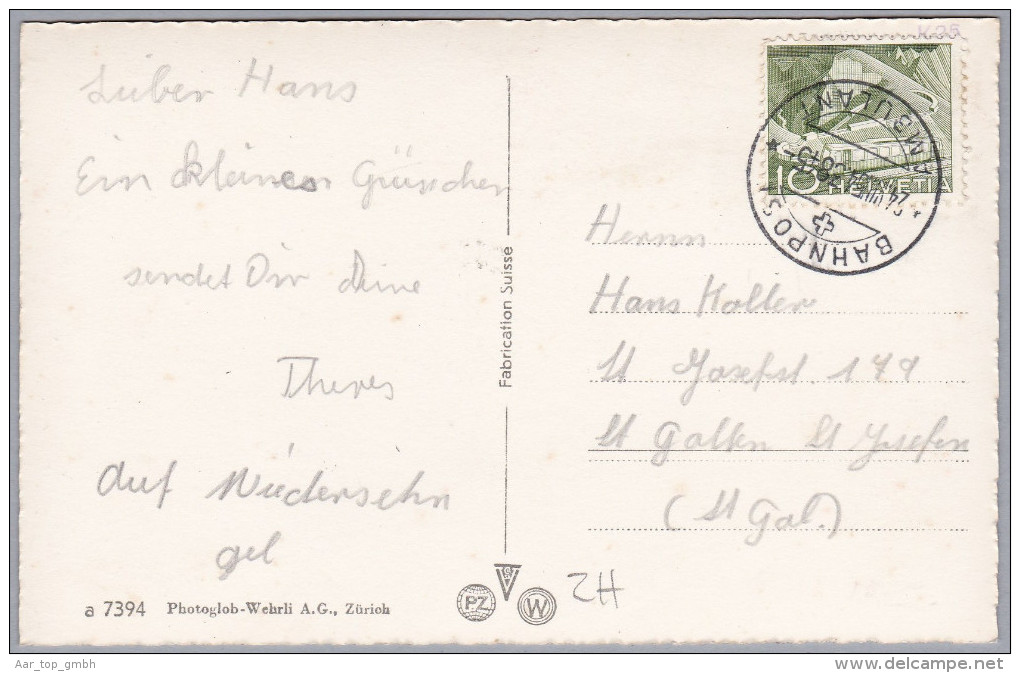 Lieber Hans
Ein kleines Grüsschen
sendet Dir Deine
Theres
Auf Wiedersehn
gel
a 7394 Photoglob-Wehrli A.G., Zürich
Fabrication Suisse
PZ
W
ZH
K25
10 HELVETIA
BAHNPOST
AMBULANT
Herrn
Hans Koller
St Josefst. 179
St Gallen St Josefen
(St Gal.)
Aar_top_gmbh
www.delcampe.net